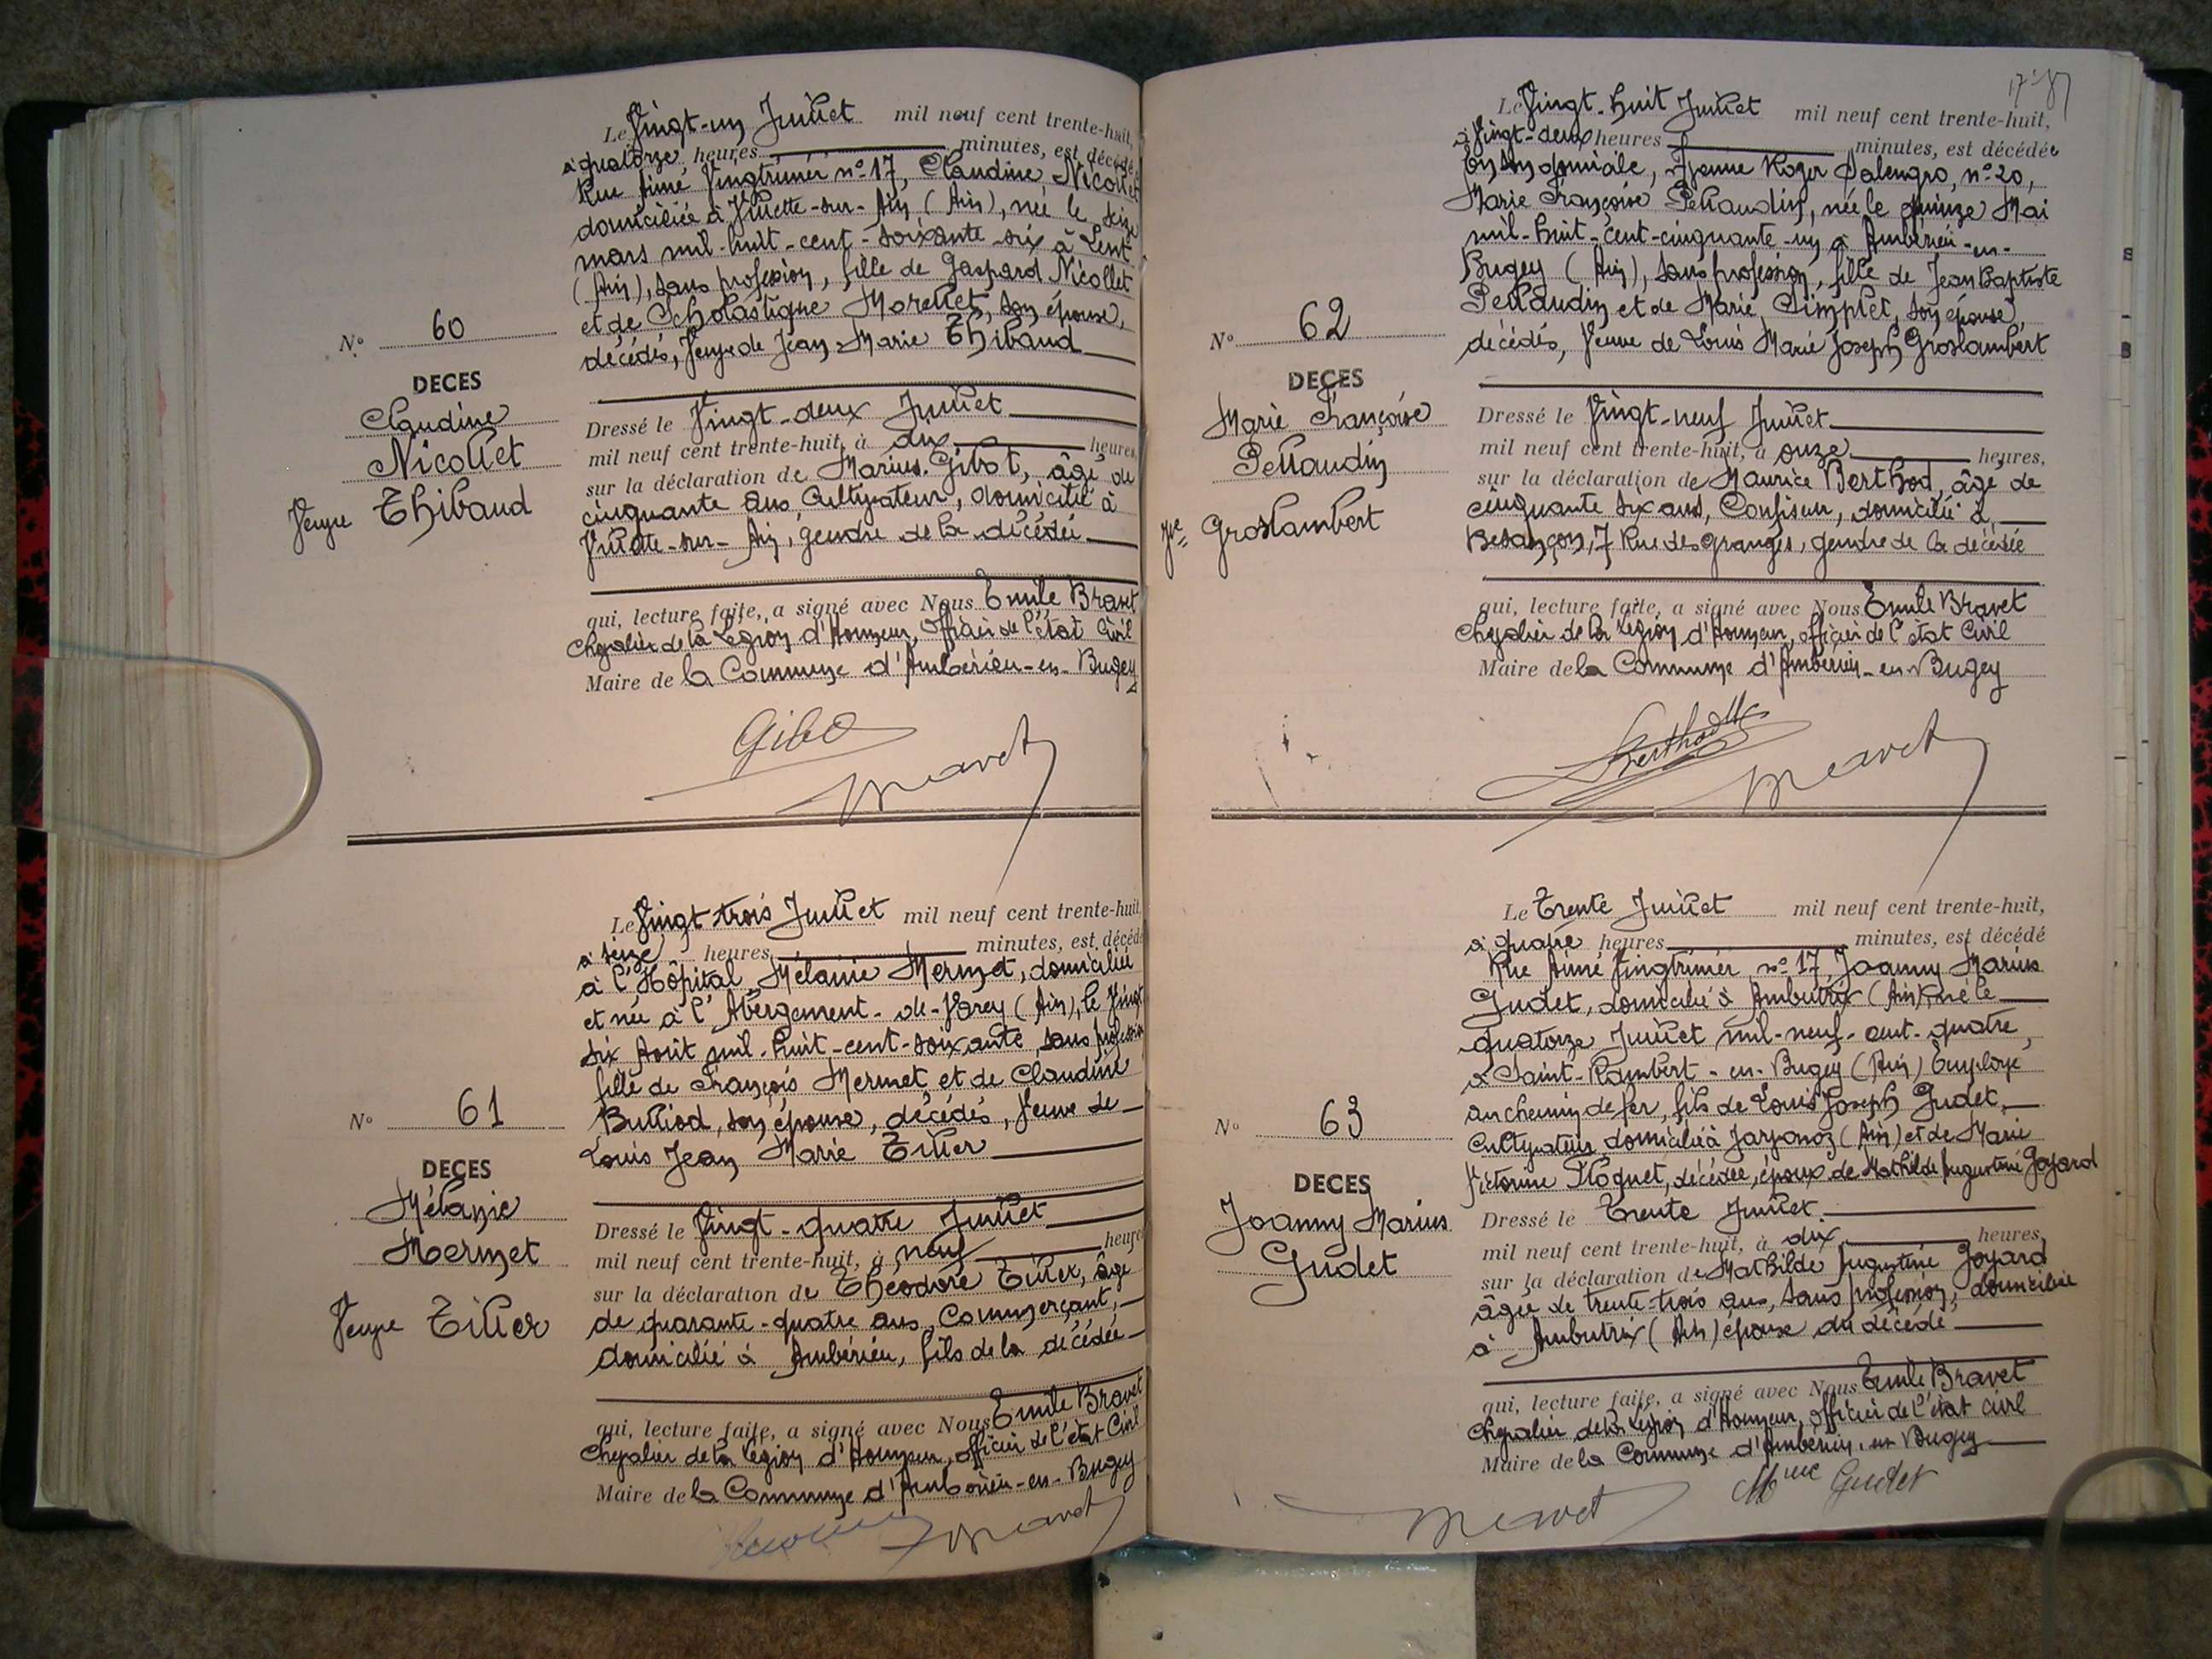 Le Vingt-un Juillet mil neuf cent trente-huit,
à quatorze heures minutes, est décédée
Rue Aimé Vingtrinier n° 17, Claudine Nicollet
domiciliée à Villette-sur-Ain (Ain), née le seize
mars mil-huit-cent-soixante-six à Lent
(Ain), sans profession, fille de Gaspard Nicollet
et de Scholastique Morellet, son épouse,
décédés, Veuve de Jean-Marie Thibaud
N° 60
DECES
Claudine
Nicollet
Veuve Thibaud
Dressé le Vingt-deux Juillet
mil neuf cent trente-huit, à dix heures,
sur la déclaration de Marius Gibot, âgé de
cinquante ans, Cultivateur, domicilié à
Villette-sur-Ain, gendre de la décédée
qui, lecture faite, a signé avec Nous Emile Bravet
Chevalier de la Légion d'Honneur, Officier de l'état Civil
Maire de la Commune d'Ambérieu-en-Bugey
Gibo
Bravet
Le Vingt-trois Juillet mil neuf cent trente-huit,
à seize heures minutes, est décédé
à l'Hôpital, Mélanie Mermet, domiciliée
et née à l'Abergement-de-Varey (Ain), le Vingt
six Août mil-huit-cent-soixante, sans profession
fille de François Mermet et de Claudine
Bulliod, son épouse, décédés, Veuve de
Louis Jean Marie Tiller
N° 61
DECES
Mélanie
Mermet
Veuve Tiller
Dressé le Vingt-quatre Juillet
mil neuf cent trente-huit, à neuf heures
sur la déclaration de Théodore Tiller, âgé
de quarante-quatre ans, Commerçant,
domicilié à Ambérieu, fils de la décédée
qui, lecture faite, a signé avec Nous Emile Bravet
Chevalier de la Légion d'Honneur, officier de l'état Civil
Maire de la Commune d'Ambérieu-en-Bugey
Bravet
Le Vingt-huit Juillet mil neuf cent trente-huit,
à Vingt-deux heures minutes, est décédée
En son domicile, Avenue Roger Salengro, n° 20,
Marie Françoise Pellaudin, née le quinze Mai
mil-huit-cent-cinquante-un à Ambérieu-en-
Bugey (Ain), sans profession, fille de Jean Baptiste
Pellaudin et de Marie Simplet, son épouse,
décédés, Veuve de Louis Marie Joseph Groslambert
N° 62
DECES
Marie Françoise
Pellaudin
Vve Groslambert
Dressé le Vingt-neuf Juillet
mil neuf cent trente-huit, à onze heures,
sur la déclaration de Maurice Berthod, âgé de
cinquante six ans, Confiseur, domicilié à
Besançon, 7 Rue des Granges, gendre de la décédée
qui, lecture faite, a signé avec Nous Emile Bravet
Chevalier de la Légion d'Honneur, officier de l'état Civil
Maire de la Commune d'Ambérieu-en-Bugey
Berthod
Bravet
Le Trente Juillet mil neuf cent trente-huit,
à quatre heures minutes, est décédé
Rue Aimé Vingtrinier n° 17, Joanny Marius
Gudet, domicilié à Ambutrix (Ain), né le
quatorze Juillet mil-neuf-cent-quatre,
à Saint-Rambert-en-Bugey (Ain) Employé
au chemin de fer, fils de Louis Joseph Gudet,
Cultivateur, domicilié à (Ain) et de Marie
Victorine Ploquet, décédée, époux de Mathilde Augustine Goyard
N° 63
DECES
Joanny Marius
Gudet
Dressé le Trente Juillet
mil neuf cent trente-huit, à dix heures,
sur la déclaration de Mathilde Augustine Goyard
âgée de trente-trois ans, sans profession, domiciliée
à Ambutrix (Ain) épouse du décédé
qui, lecture faite, a signé avec Nous Emile Bravet
Chevalier de la Légion d'Honneur, officier de l'état civil
Maire de la Commune d'Ambérieu-en-Bugey
Bravet
Mme Gudet